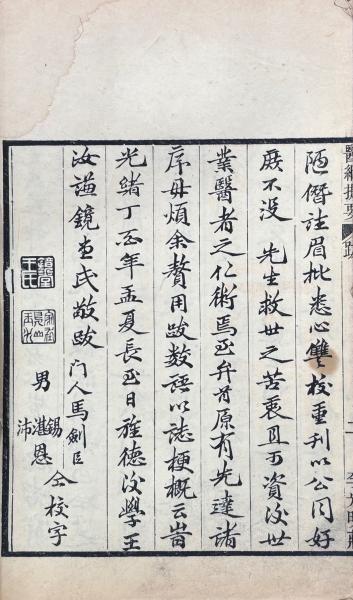 陋僭註眉批悉心讐校重刊以公同好
庶不没　先生救世之苦衷且可資後世
業醫者之仁術焉至弁首原有先達諸
序毋煩余贅用跋数語以誌梗概云旹
光緒丁酉年孟夏長至日旌德後學王
汝謙鏡堂氏敬跋
門人馬劍臣
男
錫恩
湛恩
沛恩
仝校字